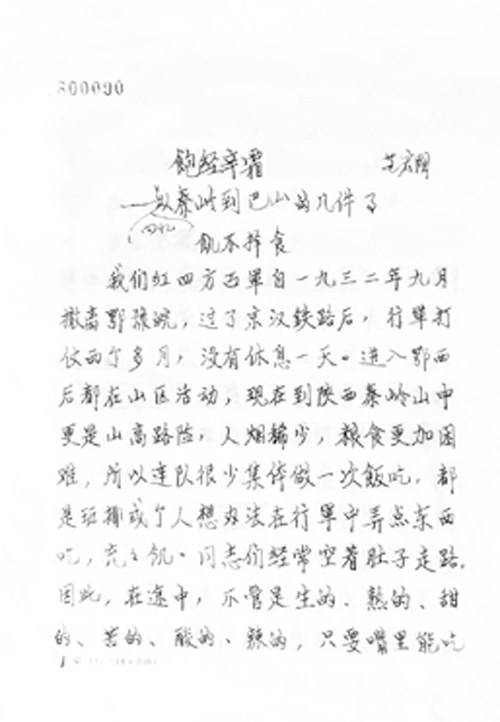 300090
饱经辛霜
——从秦岭到巴山的几件事
(回忆)
饥不择食
我们红四方面军自一九三二年九月
撤离鄂豫皖，过了京汉铁路后，行军打
仗两个多月，没有休息一天。进入鄂西
后都在山区活动，现在到陕西秦岭山中
更是山高路险，人烟稀少，粮食更加困
难，所以连队很少集体做一次饭吃，都
是班排或个人想办法在行军中弄点东西
吃，充充饥。同志们经常空着肚子走路。
因此，在途中，不管是生的、熟的、甜
的、苦的、酸的、辣的，只要嘴里能吃